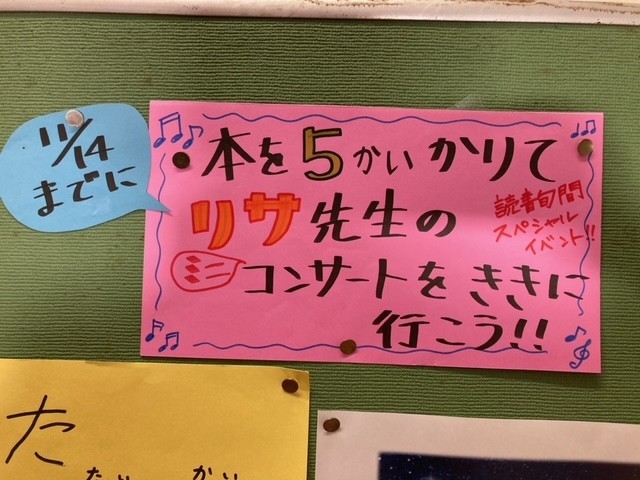 11/14
までに
本を5かいかりて
リサ先生の
ミニコンサートをききに
行こう!!
読書旬間
スペシャル
イベント!!
た